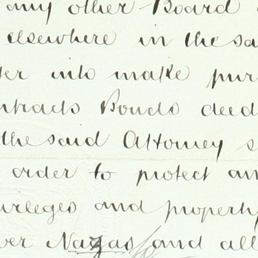 any other Board
elsewhere in the sa
ter into make pur
ntracts Bonds deed
the said Attorney s
order to protect an
ivileges and property
ver Nazas and all